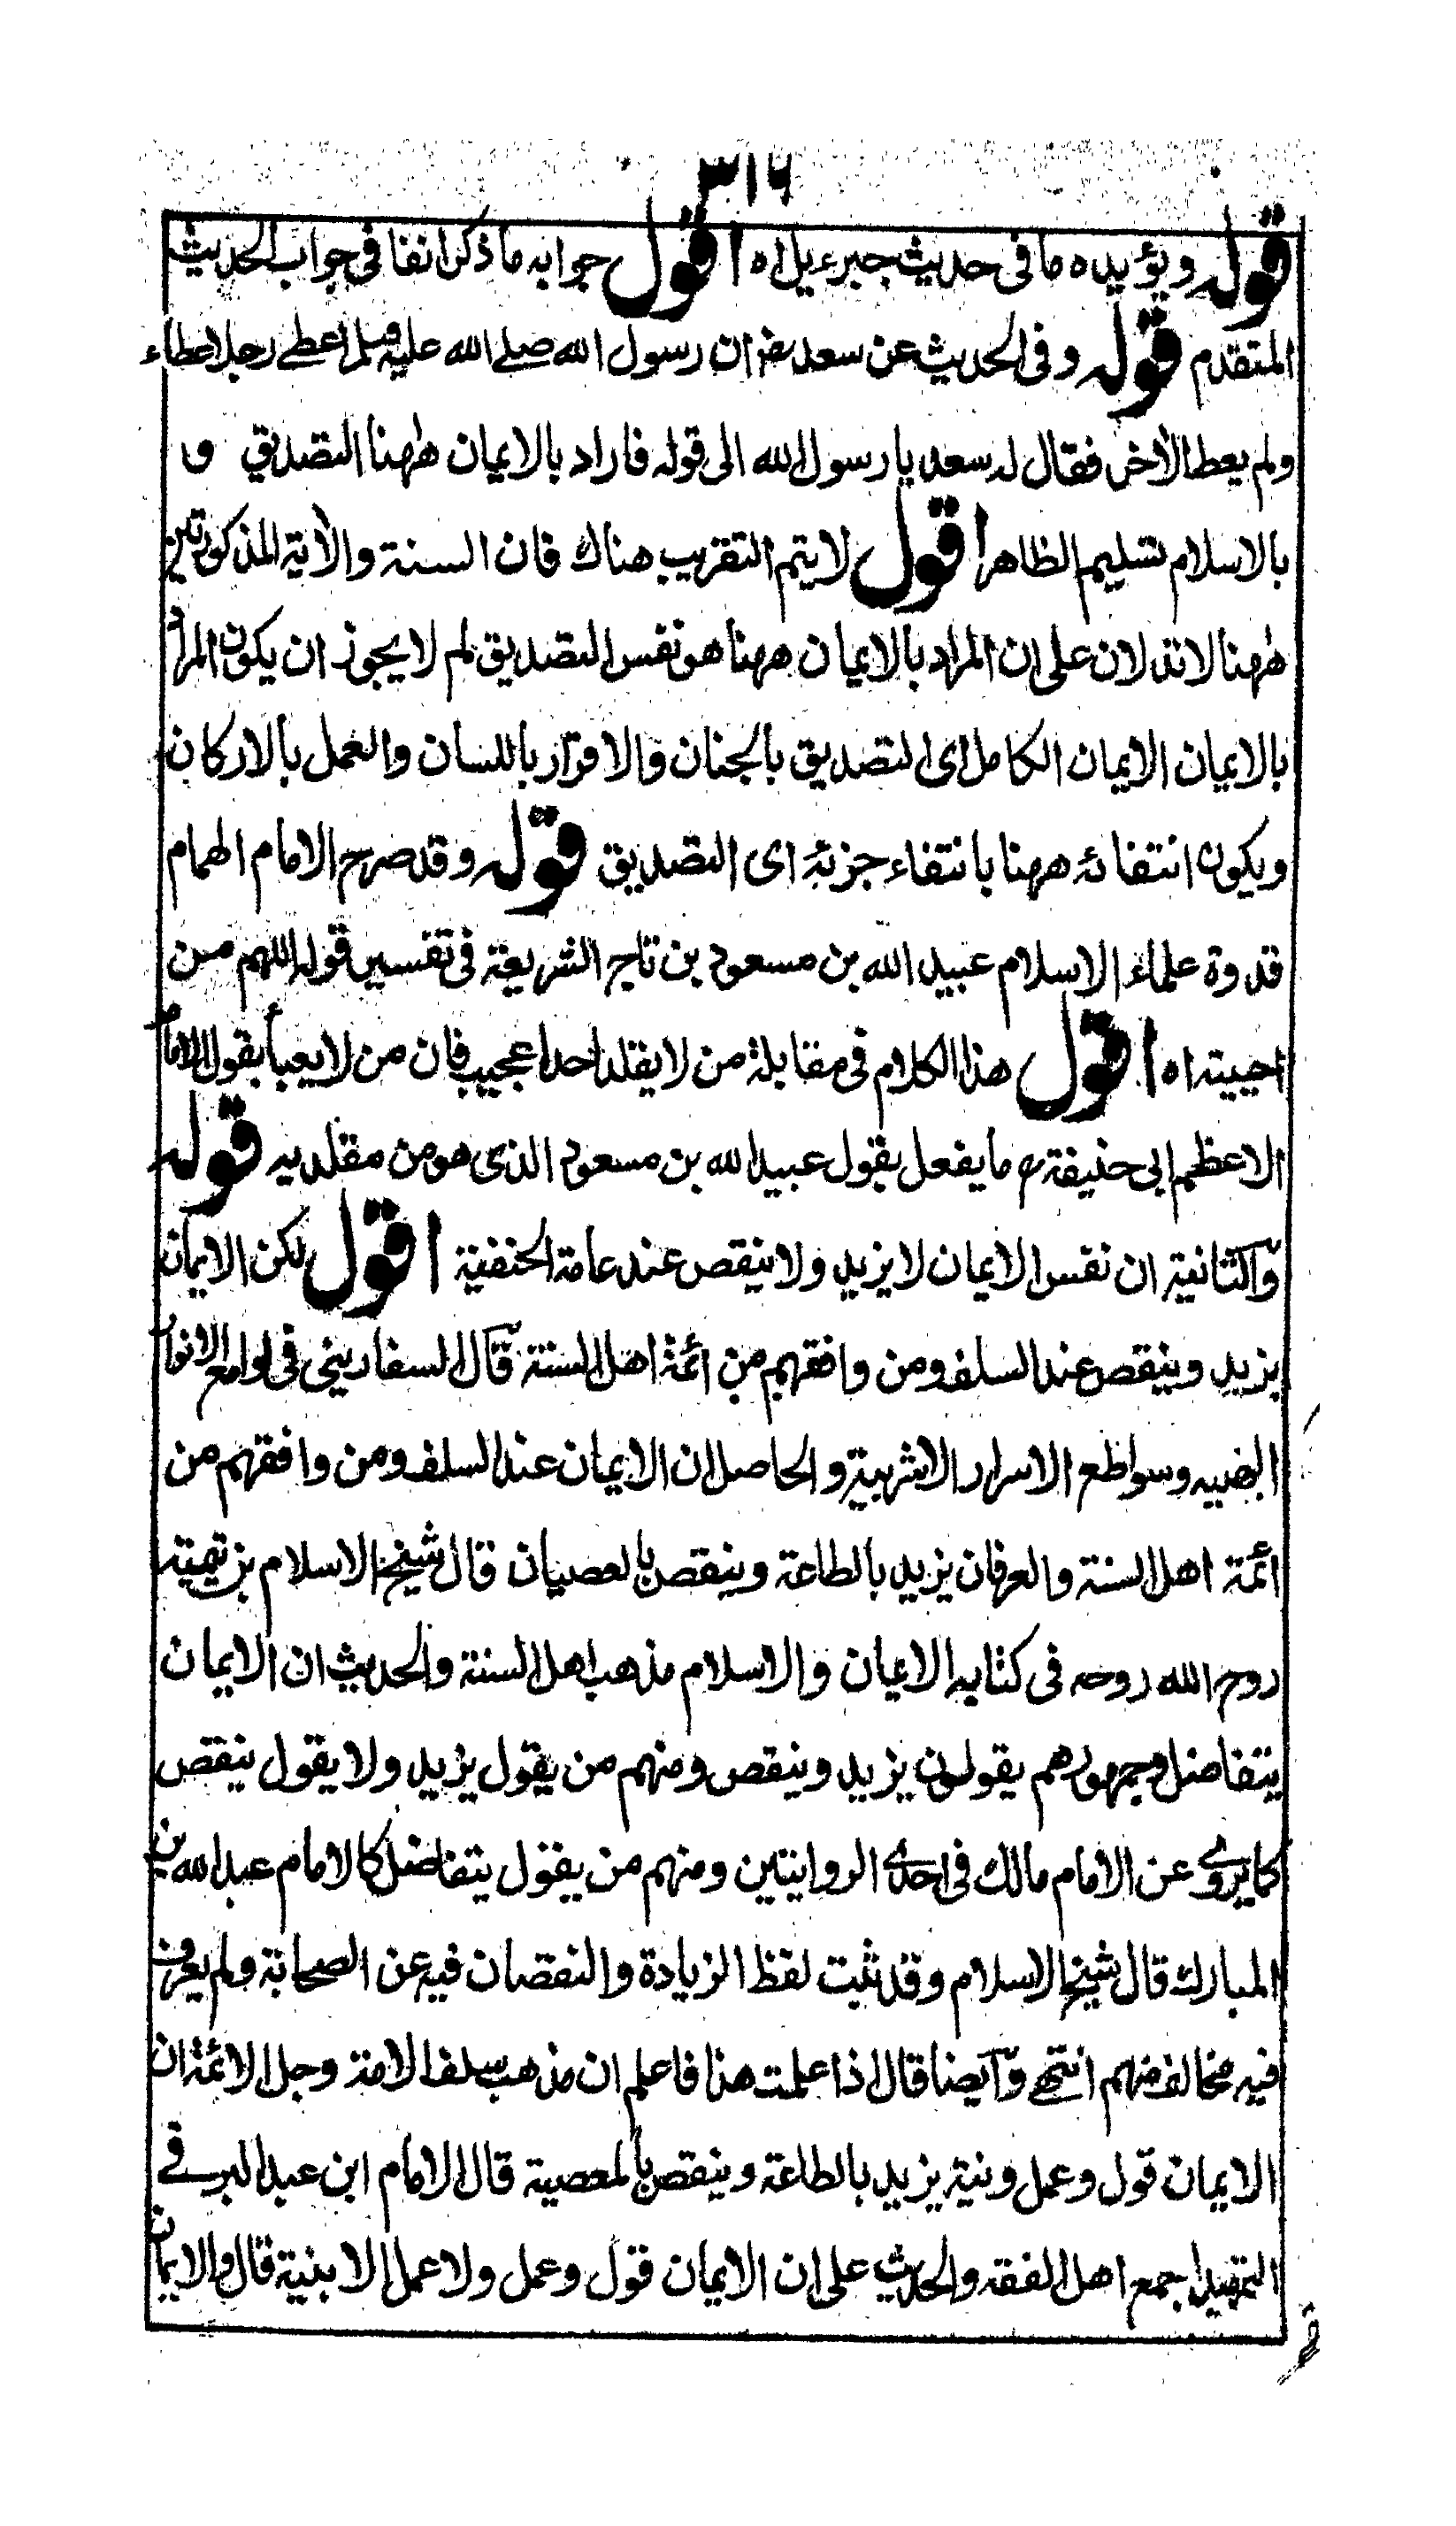 ٣١٦
قوله ويؤيده ما فى حديث جبرءيل اه اقول جوابه ما ذكر انفا فى جواب الحديث
المتقدم قوله وفى الحديث عن سعد رض ان رسول الله صلے الله عليه وسلم اعطے رجلا عطاء
ولم يعط الأخر فقال له سعد يا رسول الله الى قوله فاراد بالايمان ههنا التصديق و
بالاسلام تسليم الظاهر اقول لا يتم التقريب هناك فان السنة والأية المذكورتين
ههنا لا تدلان على ان المراد بالايمان ههنا هو نفس التصديق لم لا يجوز ان يكون المراد
بالايمان الايمان الكامل اى التصديق بالجنان والاقرار باللسان والعمل بالاركان
ويكون انتفائه ههنا بانتفاء جزئه اى التصديق قوله وقد صرح الامام الهمام
قدوة علماء الاسلام عبيد الله بن مسعود بن تاج الشريعة فى تفسير قوله اللهم من
احييته اه اقول هذا الكلام فى مقابلة من لا يقلد احدا عجيب فان من لا يعبأ بقول الامام
الاعظم ابى حنيفة رح ما يفعل بقول عبيد الله بن مسعود الذى هو من مقلديه قوله
والثانية ان نفس الايمان لا يزيد ولا ينقص عند عامة الحنفية اقول لكن الايمان
يزيد وينقص عند السلف ومن وافقهم من ائمة اهل السنة قال السفارينى فى لوامع الانوار
البهيه وسواطع الاسرار الاثرية والحاصل ان الايمان عند السلف ومن وافقهم من
ائمة اهل السنة والعرفان يزيد بالطاعة وينقص بالعصيان قال شيخ الاسلام بن تيمية
روح الله روحه فى كتابه الايمان والاسلام مذهب اهل السنة والحديث ان الايمان
يتفاضل وجمهورهم يقولون يزيد وينقص ومنهم من يقول يزيد ولا يقول ينقص
كما يروے عن الامام مالك فى احدے الروايتين ومنهم من يقول يتفاضل كالامام عبد الله بن
المبارك قال شيخ الاسلام وقد ثبت لفظ الزيادة والنقصان فيه عن الصحابة ولم يعرف
فيه مخالف منهم انتهے وايضا قال اذا علمت هذا فاعلم ان مذهب سلف الامة وجل الائمة ان
الايمان قول وعمل ونية يزيد بالطاعة وينقص بالمعصية قال الامام ابن عبد البر فے
التمهيد اجمع اهل الفقه والحديث على ان الايمان قول وعمل ولا عمل الا بنية قال والايمان